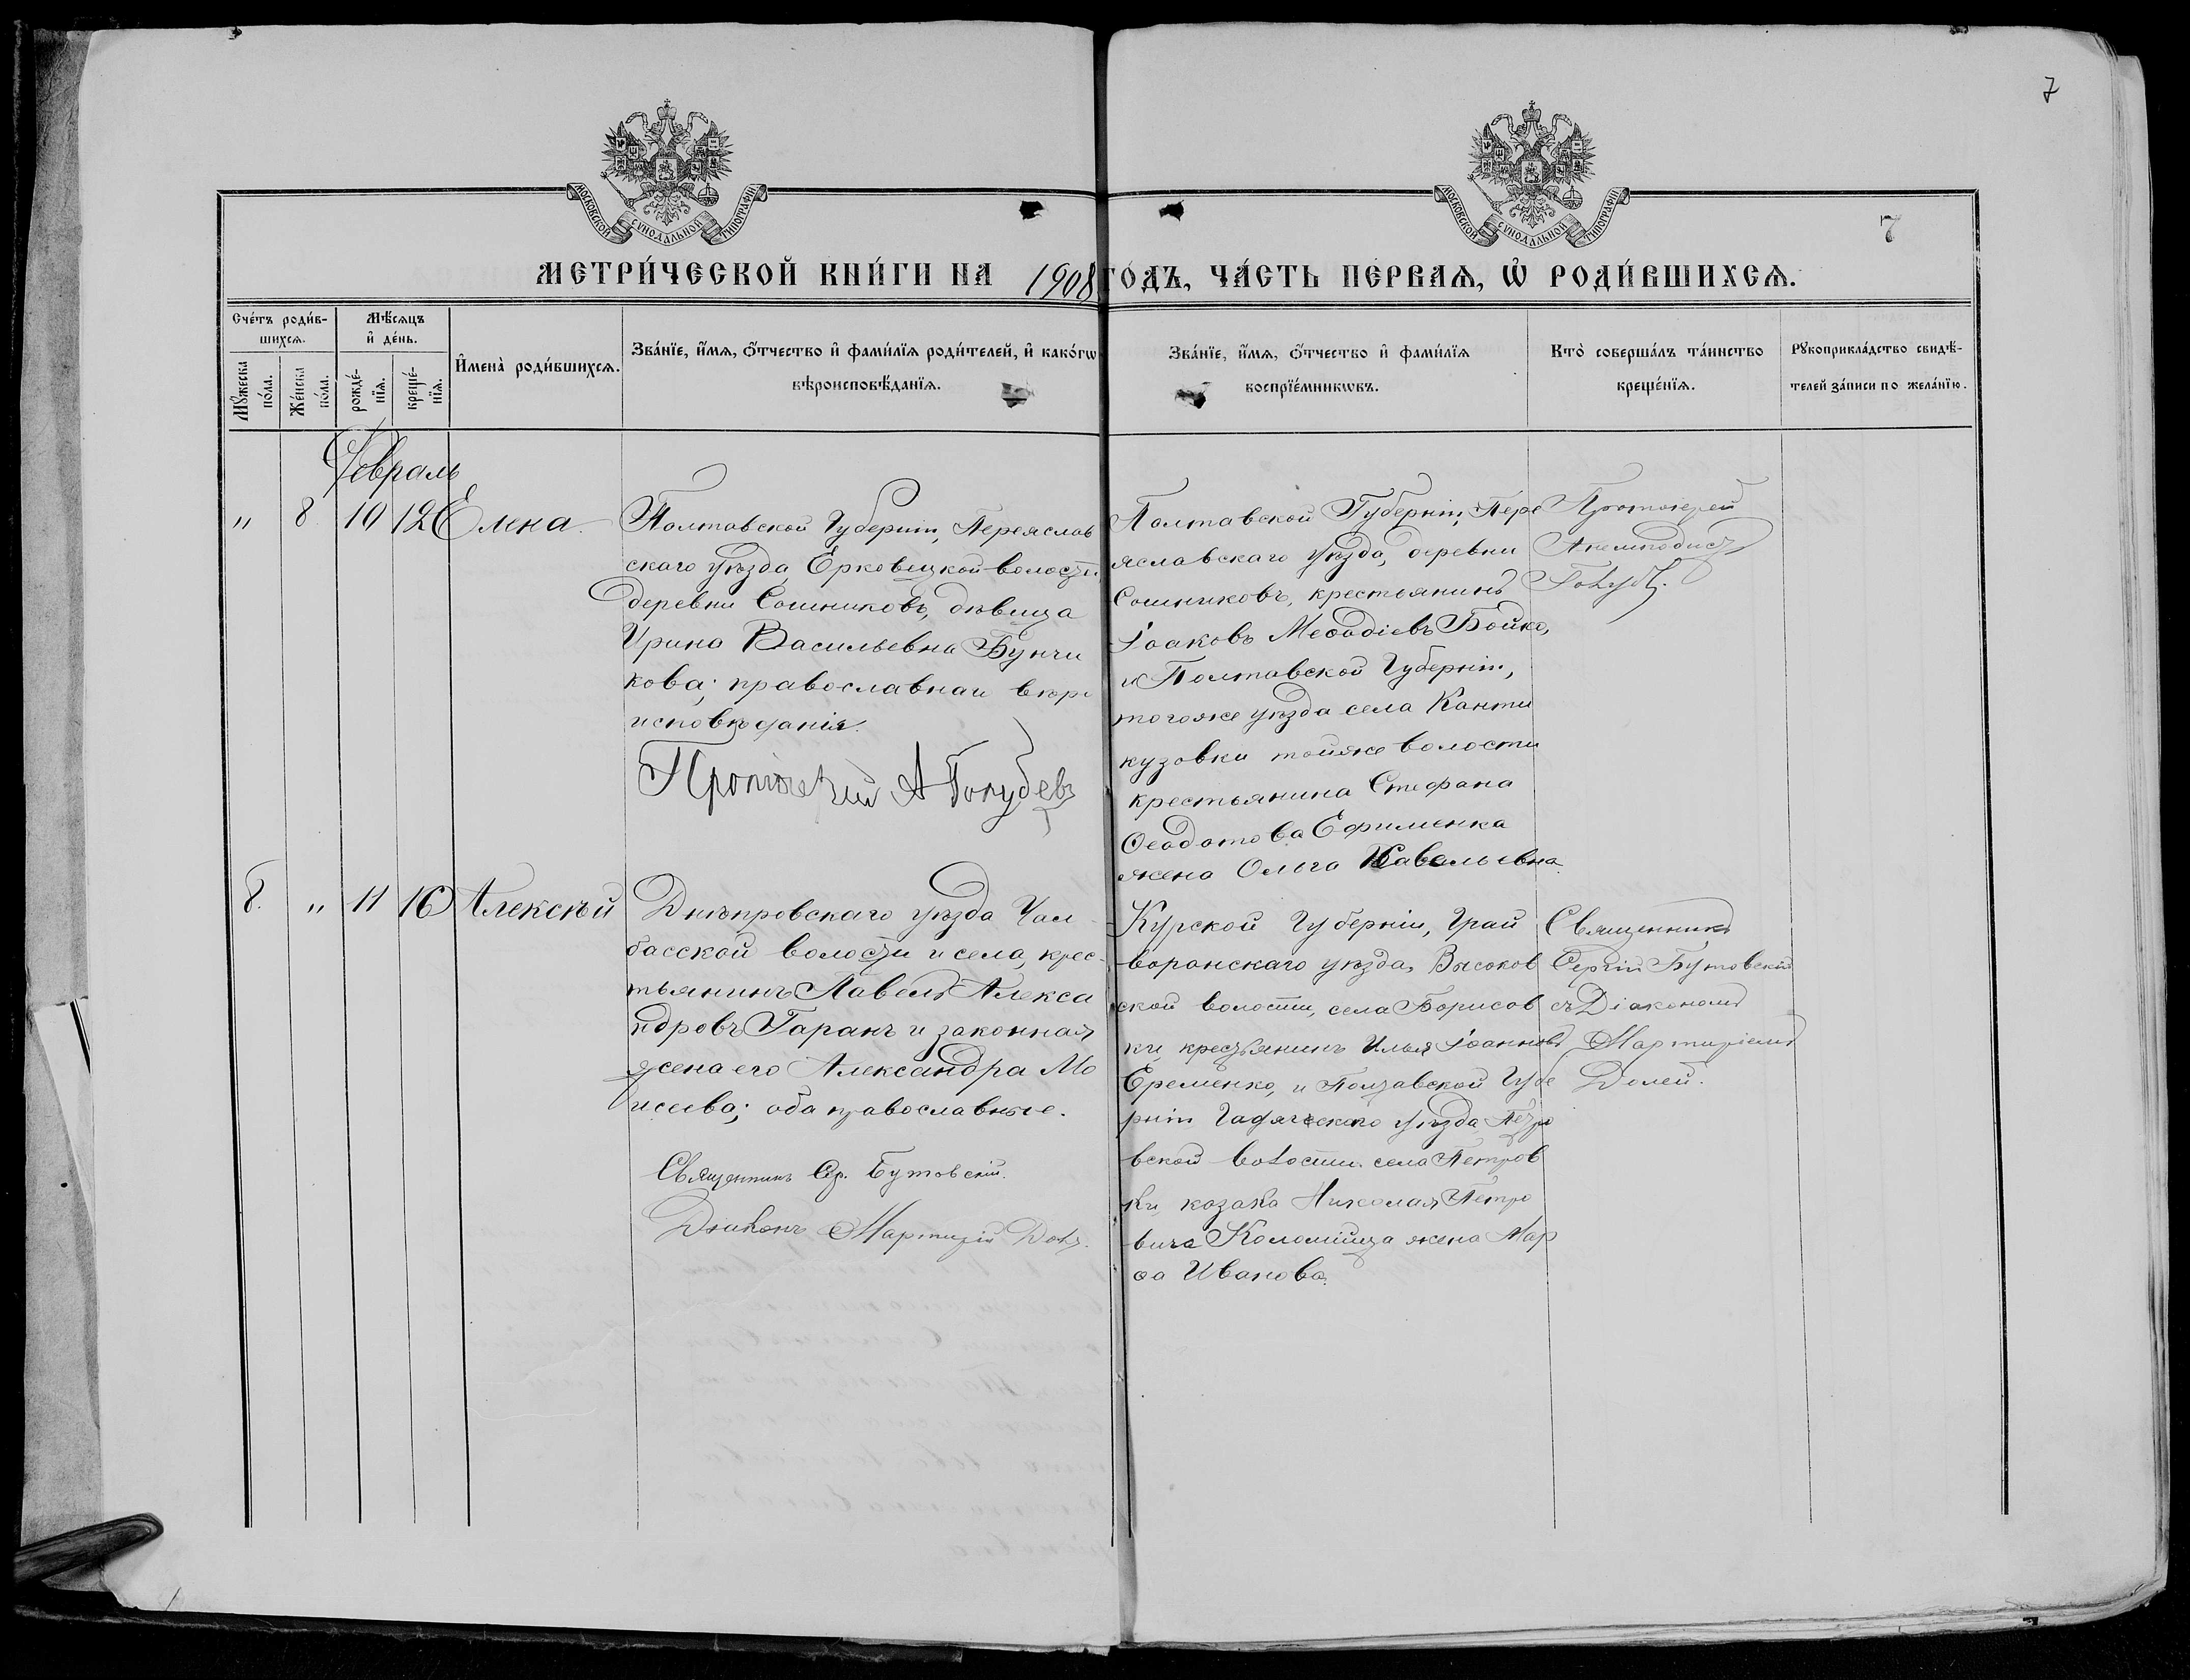 7
МОСКОВСКОЙ СУНОДАЛЬНОЙ ТИПОГРАФІИ
МОСКОВСКОЙ СУНОДАЛЬНОЙ ТИПОГРАФІИ
7
МЕТРИ́ЧЕСКОЙ КНИ́ГИ НА 1908 ГО́ДЪ, ЧА́СТЬ ПЕ́РВАѦ, Ѡ҆ РОДИ́ВШИХСѦ.
Сче́тъ роди́в-
шихсѧ.
Мѣ́сѧцъ
и҆ де́нь.
Мꙋ́жеска
по́ла.
Же́нска
по́ла.
рожде́-
нїѧ.
креще́-
нїѧ.
И҆мена̀ роди́вшихсѧ.
Зва́нїе, и҆́мѧ, ѻ҆́тчество и҆ фами́лїѧ роди́телей, и҆ како́гѡ
вѣроисповѣ́данїѧ.
Зва́нїе, и҆́мѧ, ѻ҆́тчество и҆ фами́лїѧ
воспрїе́мникѡвъ.
Кто̀ соверша́лъ та́инство
креще́нїѧ.
Рꙋкоприкла́дство свидѣ́-
телей за́писи по жела́нїю.
Февраль
" 8 10 12 Елена
Полтавской Губерніи, Переяслав
скаго уѣзда, Ерковецкой волости,
деревни Сошниковъ, дѣвица
Ирина Васильевна Бунчи
кова; православнаи вѣро
исповѣданія.
Протоіерей А Голубевъ
Полтавской Губерніи, Пере
яславскаго уѣзда, деревни
Сошниковъ, крестьянинъ
Іоаковъ Меѳодіевъ Бойко,
и Полтавской Губерніи,
тогоже уѣзда села Канти
кузовки тойже волости
крестьянина Стефана
Ѳеодотова Ефименка
жена Ольга Савельевна.
Протоіерей
Акепподистъ
Голубе.
8. " 11 16 Алексѣй
Днѣпровскаго уѣзда Чал
басской волости и села, крес-
тьянинъ Павелъ Алекса
ндровъ Таранъ и законная
жена его Александра Мо
исеева; оба православные.
Священникъ Ср. Бутовскій.
Діаконъ Мартирій Доля.
Курской Губерніи, Грай
воронскаго уѣзда, Высоков
ской волости, села Борисов
ки, крестьянинъ Илья Іоанновъ
Еременко, и Полтавской Губе
рніи Гадячскаго уѣзда, Петро
вской волости села Петров
ки, козака Николая Петро
вича Коломійца жена Мар
ѳа Иванова.
Священникъ
Сергій Бутовскій
съ Діакономъ
Мартиріемъ
Долей.